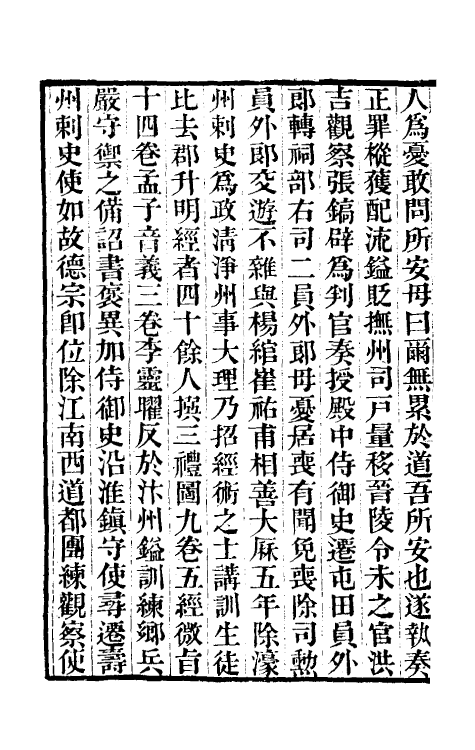 人爲憂敢問所安母曰爾無累於道吾所安也遂執奏
正罪樅獲配流鎰貶撫州司戸量移晉陵令未之官洪
吉觀察張鎬辟爲判官奏授殿中侍御史遷屯田員外
郎轉祠部右司二員外郎母憂居喪有聞免喪除司勲
員外郎交遊不雜與楊綰崔祐甫相善大厤五年除濠
州刺史爲政清淨州事大理乃招經術之士講訓生徒
比去郡升明經者四十餘人撰三禮圖九卷五經微旨
十四卷孟子音義三卷李靈曜反於汴州鎰訓練鄉兵
嚴守禦之備詔書褒異加侍御史沿淮鎮守使尋遷壽
州刺史使如故德宗卽位除江南西道都團練觀察使